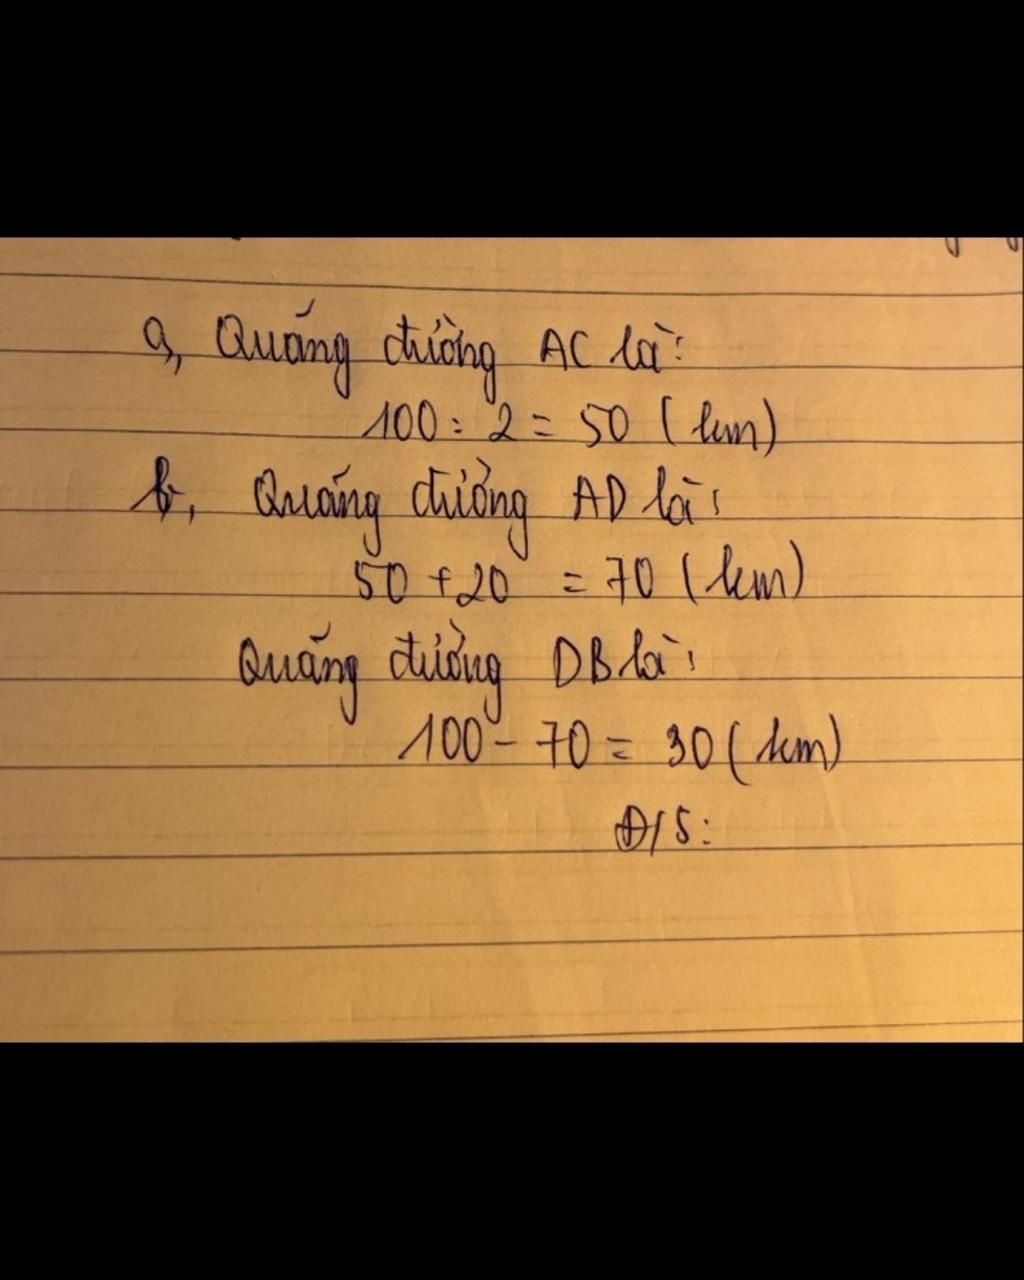 a, Quãng đường AC là:
100 : 2 = 50 (km)
b, Quãng đường AD là:
50 + 20 = 70 (km)
Quãng đường DB là:
100 - 70 = 30 (km)
Đ/S: